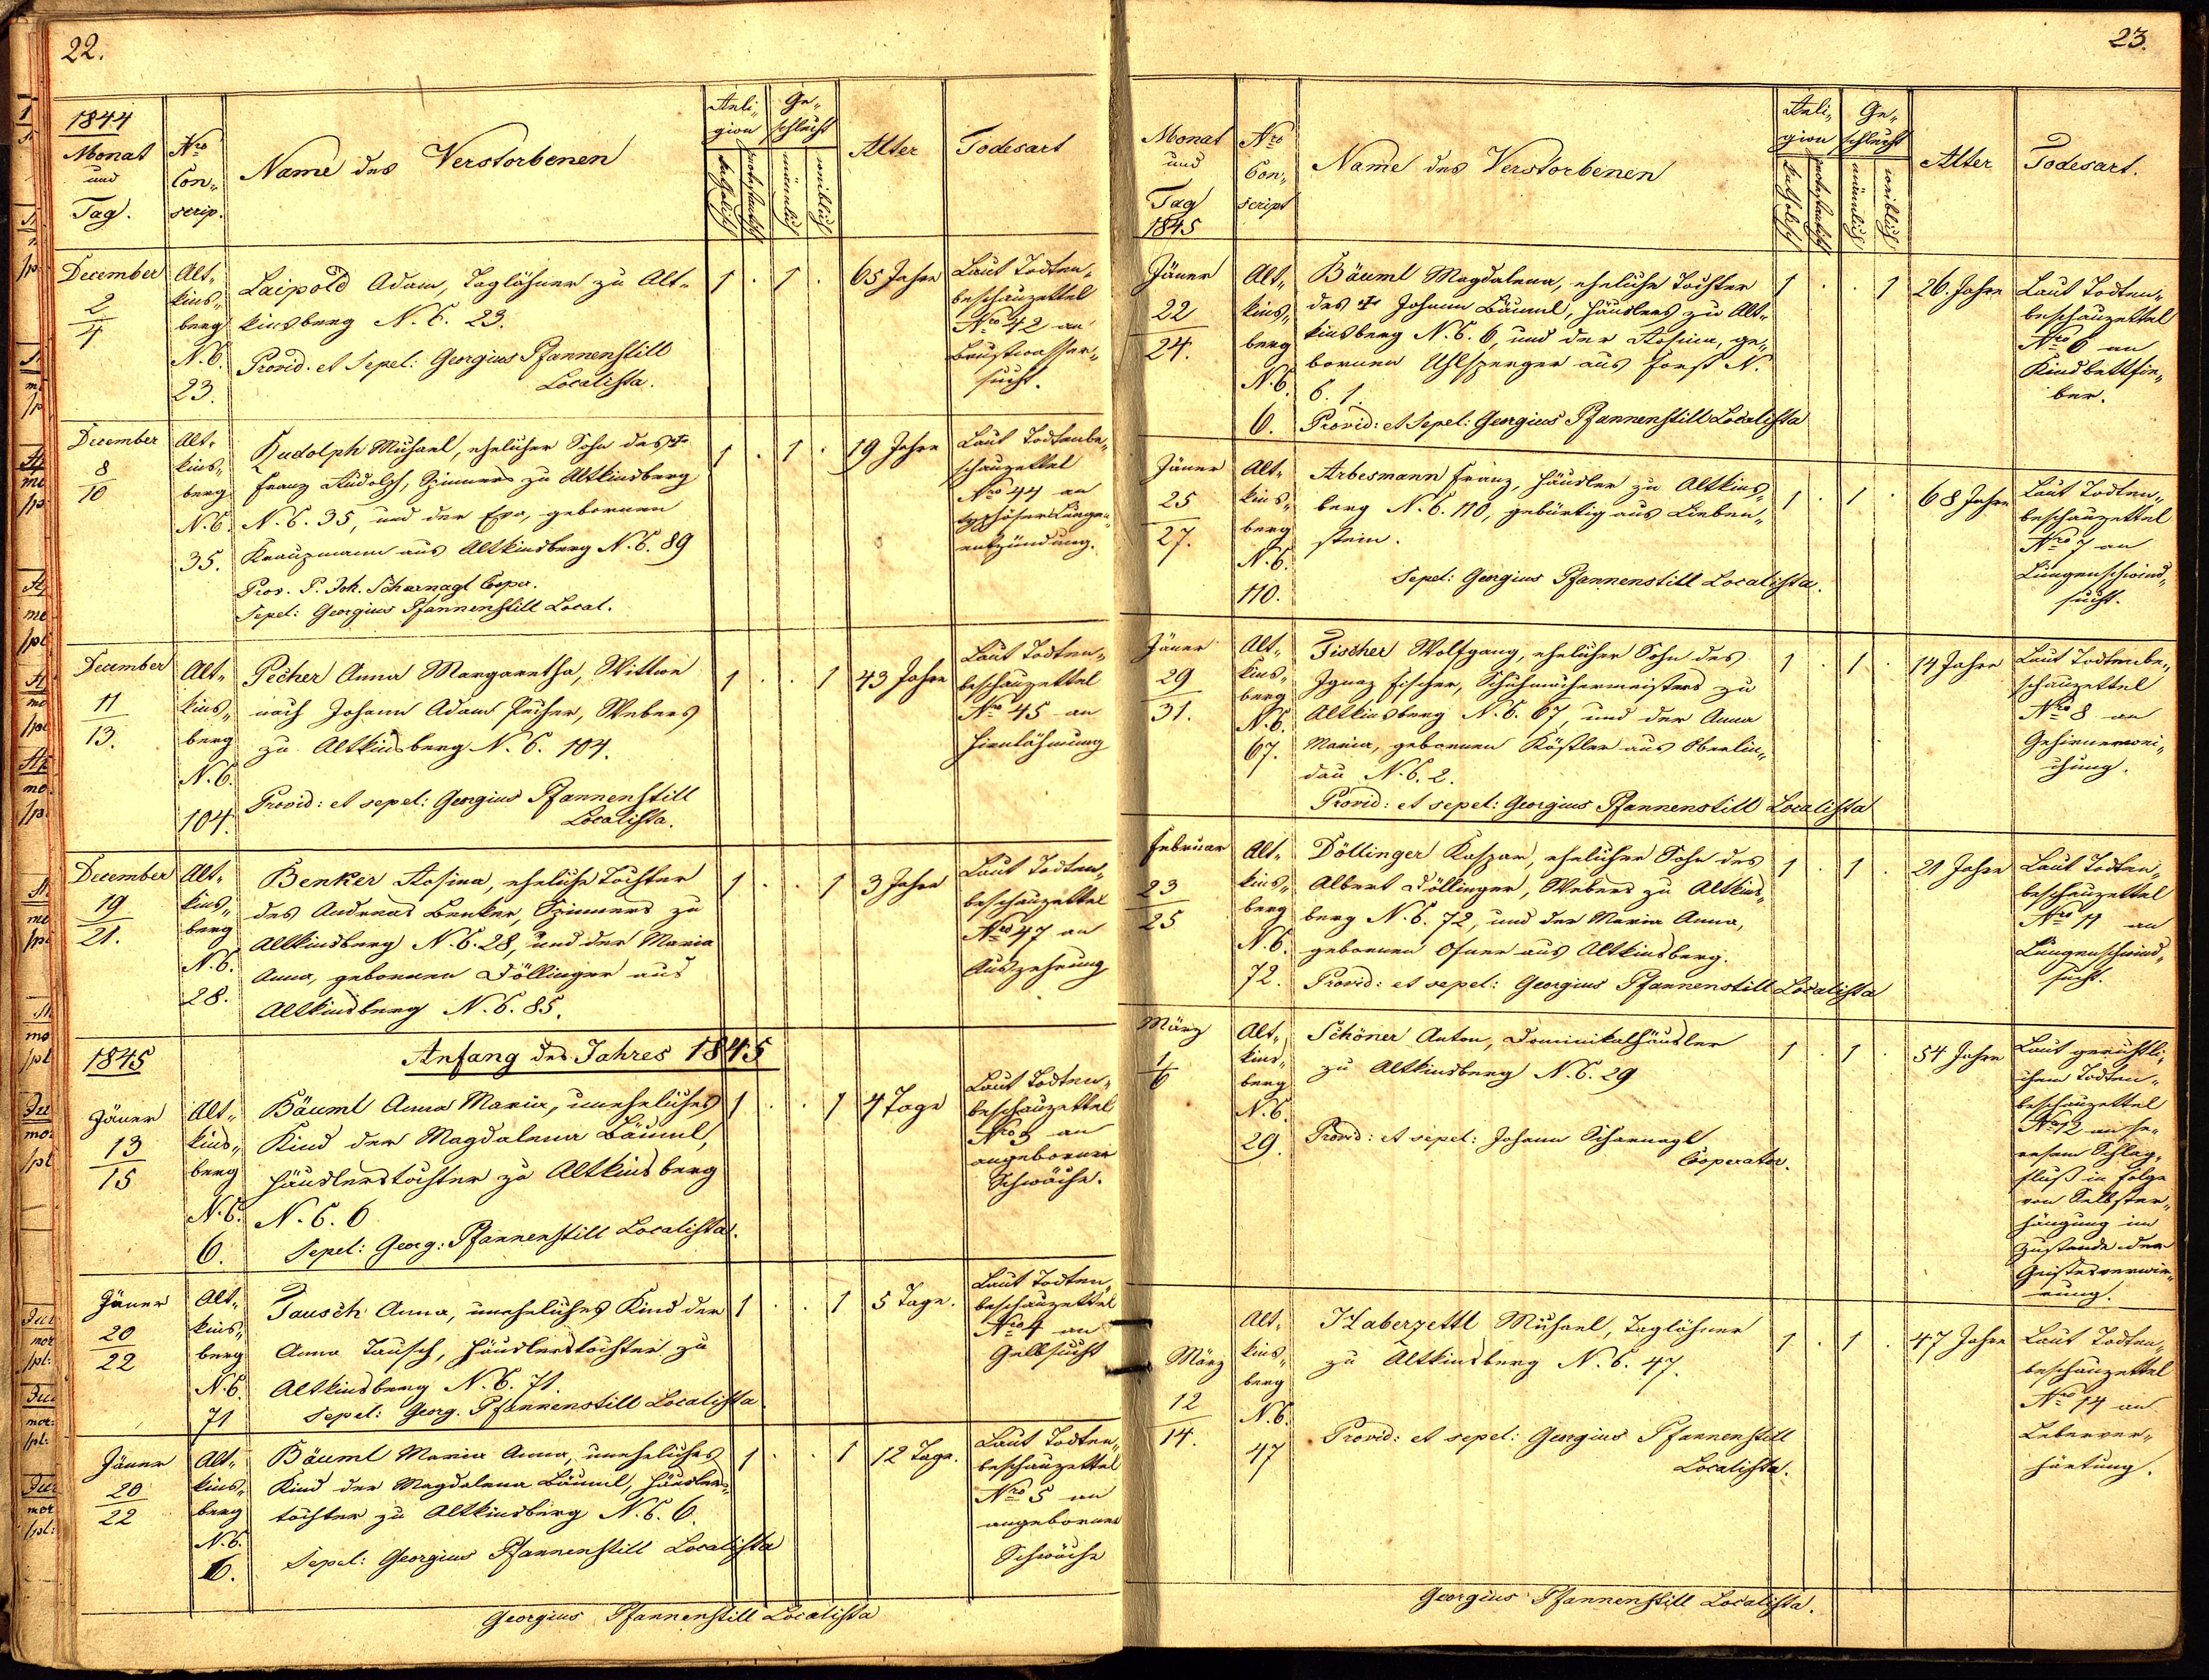 22.
1844
Monat
und
Tag.
Nro
Con-
scrip.
Name des Verstorbenen
Reli-
gion
katholisch
protestantisch
Ge-
schlecht
männlich
weiblich
Alter
Todesart
December
2
4
Alt-
kins-
berg
N.C.
23.
Laipold Adam, Taglöhner zu Alt-
kinsberg N.C. 23.
Provid. et Sepel: Georgius Pfannenstill
Localista.
1 . 1 .
65 Jahre
Laut Todten-
beschauzettel
Nro 42 an
Brustwasser-
sucht.
December
8
10
Alt-
kins-
berg
N.C.
35.
Rudolph Michael, ehelicher Sohn des †
Franz Rudolph, Spinners zu Altkinsberg
N.C. 35, und der Eva, gebornen
Krauzmann aus Altkinsberg N.C. 89
Prov. P. Joh. Scharnagl Cooper.
Sepel: Georgius Pfannenstill Local.
1 . 1 .
19 Jahre
Laut Todtenbe-
schauzettel
Nro 44 an
typhöser Lungen-
entzündung.
December
11
13.
Alt-
kins-
berg
N.C.
104.
Pecher Anna Margaretha, Wittwe
nach Johann Adam Pecher, Webers
zu Altkinsberg N.C. 104.
Provid: et sepel: Georgius Pfannenstill
Localista.
1 . . 1
43 Jahre
Laut Todten-
beschauzettel
Nro 45 an
Hirnlähmung
December
19
21.
Alt-
kins-
berg
N.C.
28.
Benker Rosina, eheliche Tochter
des Andreas Benker, Spinners zu
Altkinsberg N.C. 28, und der Maria
Anna, gebornen Döllinger aus
Altkinsberg N.C. 85.
1 . . 1
3 Jahre
Laut Todten-
beschauzettel
Nro 47 an
Auszehrung
1845
Anfang des Jahres 1845
Jäner
13
15
Alt-
kins-
berg
N.C.
6.
Bäuml Anna Maria, uneheliches
Kind der Magdalena Bäuml,
Häuslerstochter zu Altkinsberg
N.C. 6
Sepel: Georg: Pfannenstill Localista.
1 . . 1
4 Tage
Laut Todten-
beschauzettel
Nro 3 an
angeborner
Schwäche.
Jäner
20
22
Alt-
kins-
berg
N.C.
71
Tausch Anna, uneheliches Kind der
Anna Tausch, Häuslerstochter zu
Altkinsberg N.C. 71.
Sepel: Georg. Pfannenstill Localista
1 . . 1
5 Tage.
Laut Todten-
beschauzettel
Nro 4 an
Gelbsucht
Jäner
20
22
Alt-
kins-
berg
N.C.
6.
Bäuml Maria Anna, uneheliches
Kind der Magdalena Bäuml, Häuslers-
tochter zu Altkinsberg N.C. 6.
Sepel: Georgius Pfannenstill Localista
1 . . 1
12 Tage.
Laut Todten-
beschauzettel
Nro 5 an
angeborner
Schwäche
Georgius Pfannenstill Localista
23.
Monat
und
Tag
1845
Nro
Con-
script
Name des Verstorbenen
Reli-
gion
katholisch
protestantisch
Ge-
schlecht
männlich
weiblich
Alter
Todesart.
Jäner
22
24.
Alt-
kins-
berg
N.C.
6.
Bäuml Magdalena, eheliche Tochter
des † Johann Bäuml, Häuslers zu Alt-
kinsberg N.C. 6, und der Rosina, ge-
bornen Uhlsperger aus Forst N.
C. 1.
Provid: et Sepel: Georgius Pfannenstill Localista
1 . . 1
26 Jahre
Laut Todten-
beschauzettel
Nro 6 an
Kindbettfie-
ber.
Jäner
25
27.
Alt-
kins-
berg
N.C.
110.
Arbesmann Franz, Häusler zu Altkins-
berg N.C. 110, gebürtig aus Lieben-
stein.
Sepel: Georgius Pfannenstill Localista.
1 . 1 .
68 Jahre
Laut Todten-
beschauzettel
Nro 7 an
Lungenschwind-
sucht.
Jäner
29
31.
Alt-
kins-
berg
N.C.
67.
Fischer Wolfgang, ehelicher Sohn des
Ignaz Fischer, Schuhmachermeisters zu
Altkinsberg N.C. 67, und der Anna
Maria, gebornen Köstler aus Oberlin-
dau N.C. 2.
Provid: et sepel: Georgius Pfannenstill Localista
1 . 1 .
14 Jahre
Laut Todtenbe-
schauzettel
Nro 8 an
Gehirnerwei-
chung.
Februar
23
25
Alt-
kins-
berg
N.C.
72.
Döllinger Kaspar, ehelicher Sohn des
Albert Döllinger, Webers zu Altkins-
berg N.C. 72, und der Maria Anna,
gebornen Ofner aus Altkinsberg.
Provid: et sepel: Georgius Pfannenstill Localista
1 . 1 .
21 Jahre
Laut Todten-
beschauzettel
Nro 11 an
Lungenschwind-
sucht.
März
1
6
Alt-
kins-
berg
N.C.
29.
Schöner Anton, Dominikalhäusler
zu Altkinsberg N.C. 29
Provid: et sepel: Johann Scharnagl
Cooperator.
1 . 1 .
54 Jahre
Laut gerichtli-
chem Todten-
beschauzettel
Nro 12 an
Schlag-
fluß in Folge
von Selbster-
hängung im
Zustande der
Geistesverwir-
rung.
März
12
14.
Alt-
kins-
berg
N.C.
47
Haberzettl Michael, Taglöhner
zu Altkinsberg N.C. 47.
Provid: et sepel: Georgius Pfannenstill
Localista.
1 . 1 .
47 Jahre
Laut Todten-
beschauzettel
Nro 14 an
Leberver-
härtung.
Georgius Pfannenstill Localista.